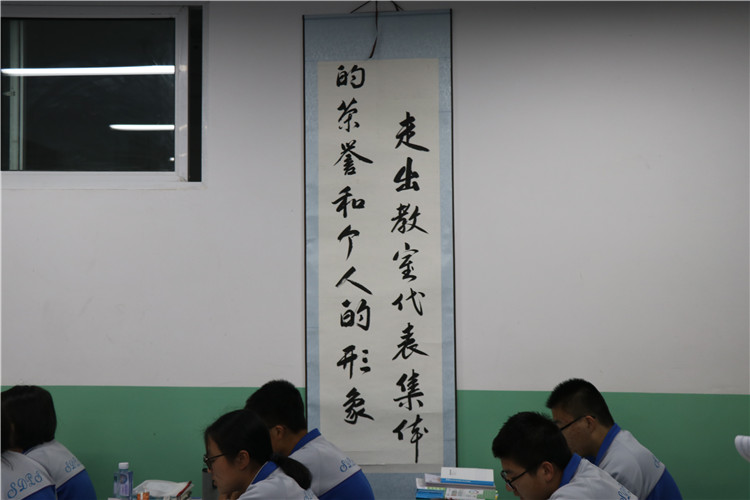 走出教室代表集体
的荣誉和个人的形象